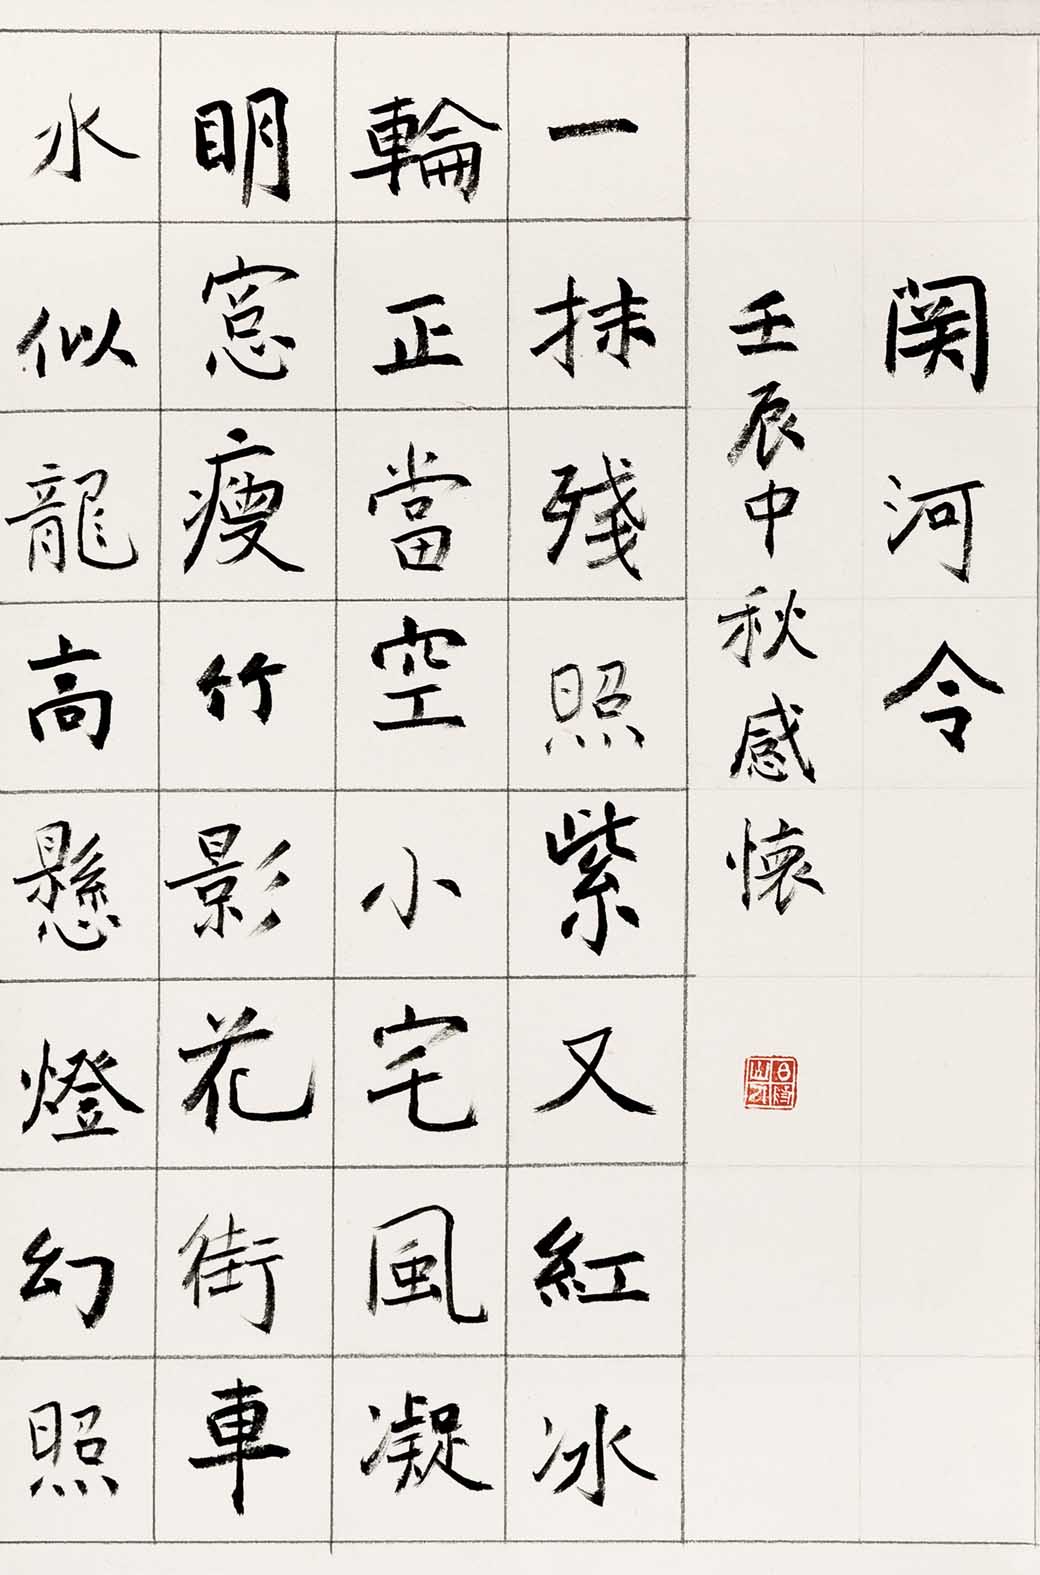 関河令
壬辰中秋感懷
一抹殘照紫又紅冰
輪正當空小宅風凝
明窓瘦竹影花街車
水似龍高懸燈幻照